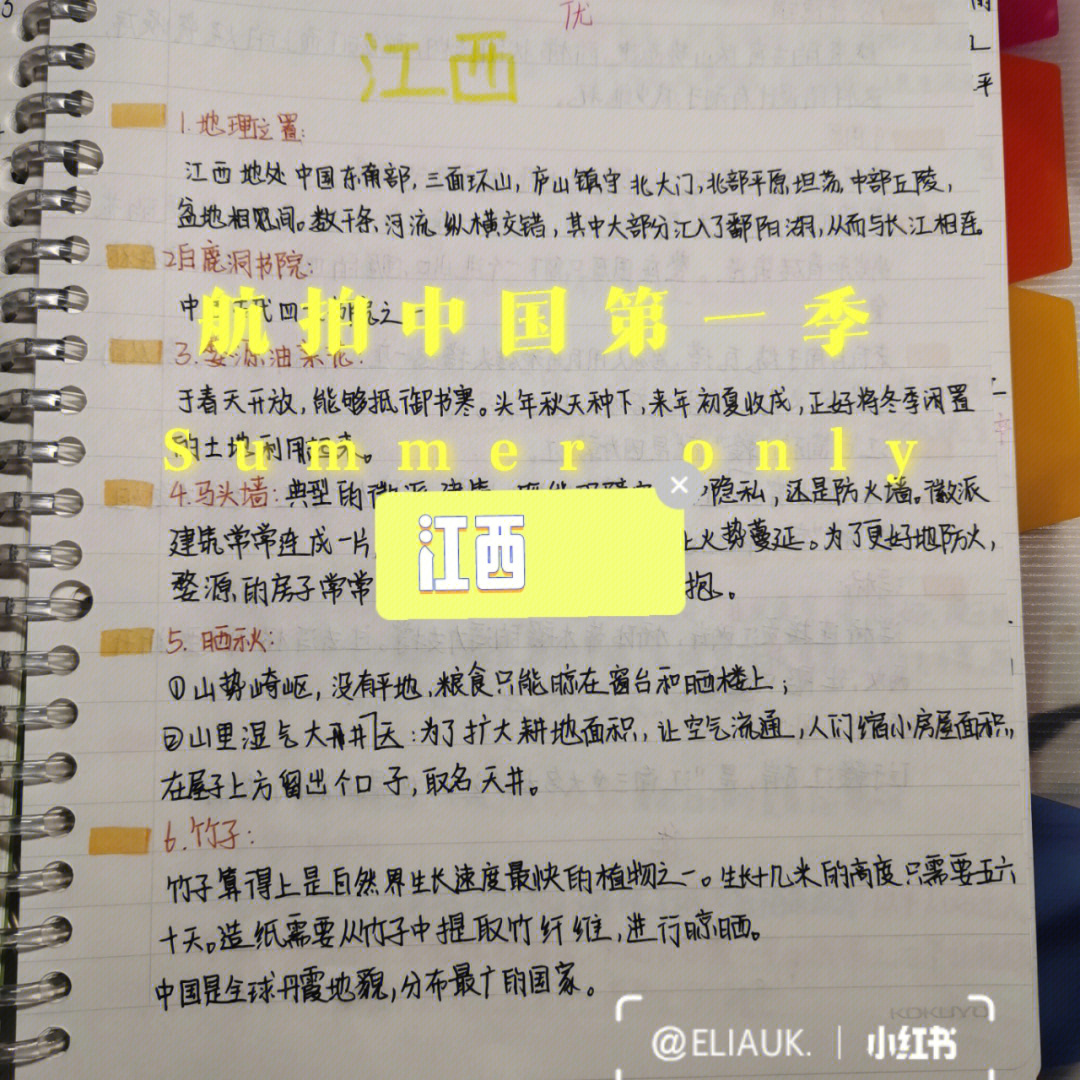 优
江西
1.地理位置:
江西地处中国东南部,三面环山,庐山镇守北大门,北部平原坦荡,中部丘陵,
盆地相见间。数千条河流纵横交错,其中大部分汇入了鄱阳湖,从而与长江相连。
2白鹿洞书院:
中 代四 之一
航拍中国第一季
3.婺源油菜花:
于春天开放,能够抵御书寒。头年秋天种下,来年初夏收成,正好将冬季闲置
的土地利用起来。
Summer only
4.马头墙:典型的徽派建筑, 隐私,还是防火墙。徽派
建筑常常连成一片, 火势蔓延。为了更好地防火,
婺源的房子常常 抱。
江西
5.晒秋:
①山势崎岖,没有平地,粮食只能晾在窗台和晒楼上;
②山里湿气大天:为了扩大耕地面积,让空气流通,人们缩小房屋面积,
在屋子上方留出个口子,取名天井。
6.竹子:
竹子算得上是自然界生长速度最快的植物之一。生长十几米的高度只需要五六
十天。造纸需要从竹子中提取竹纤维,进行晾晒。
中国是全球丹霞地貌,分布最广的国家。
KOKUYO
@ELIAUK. | 小红书